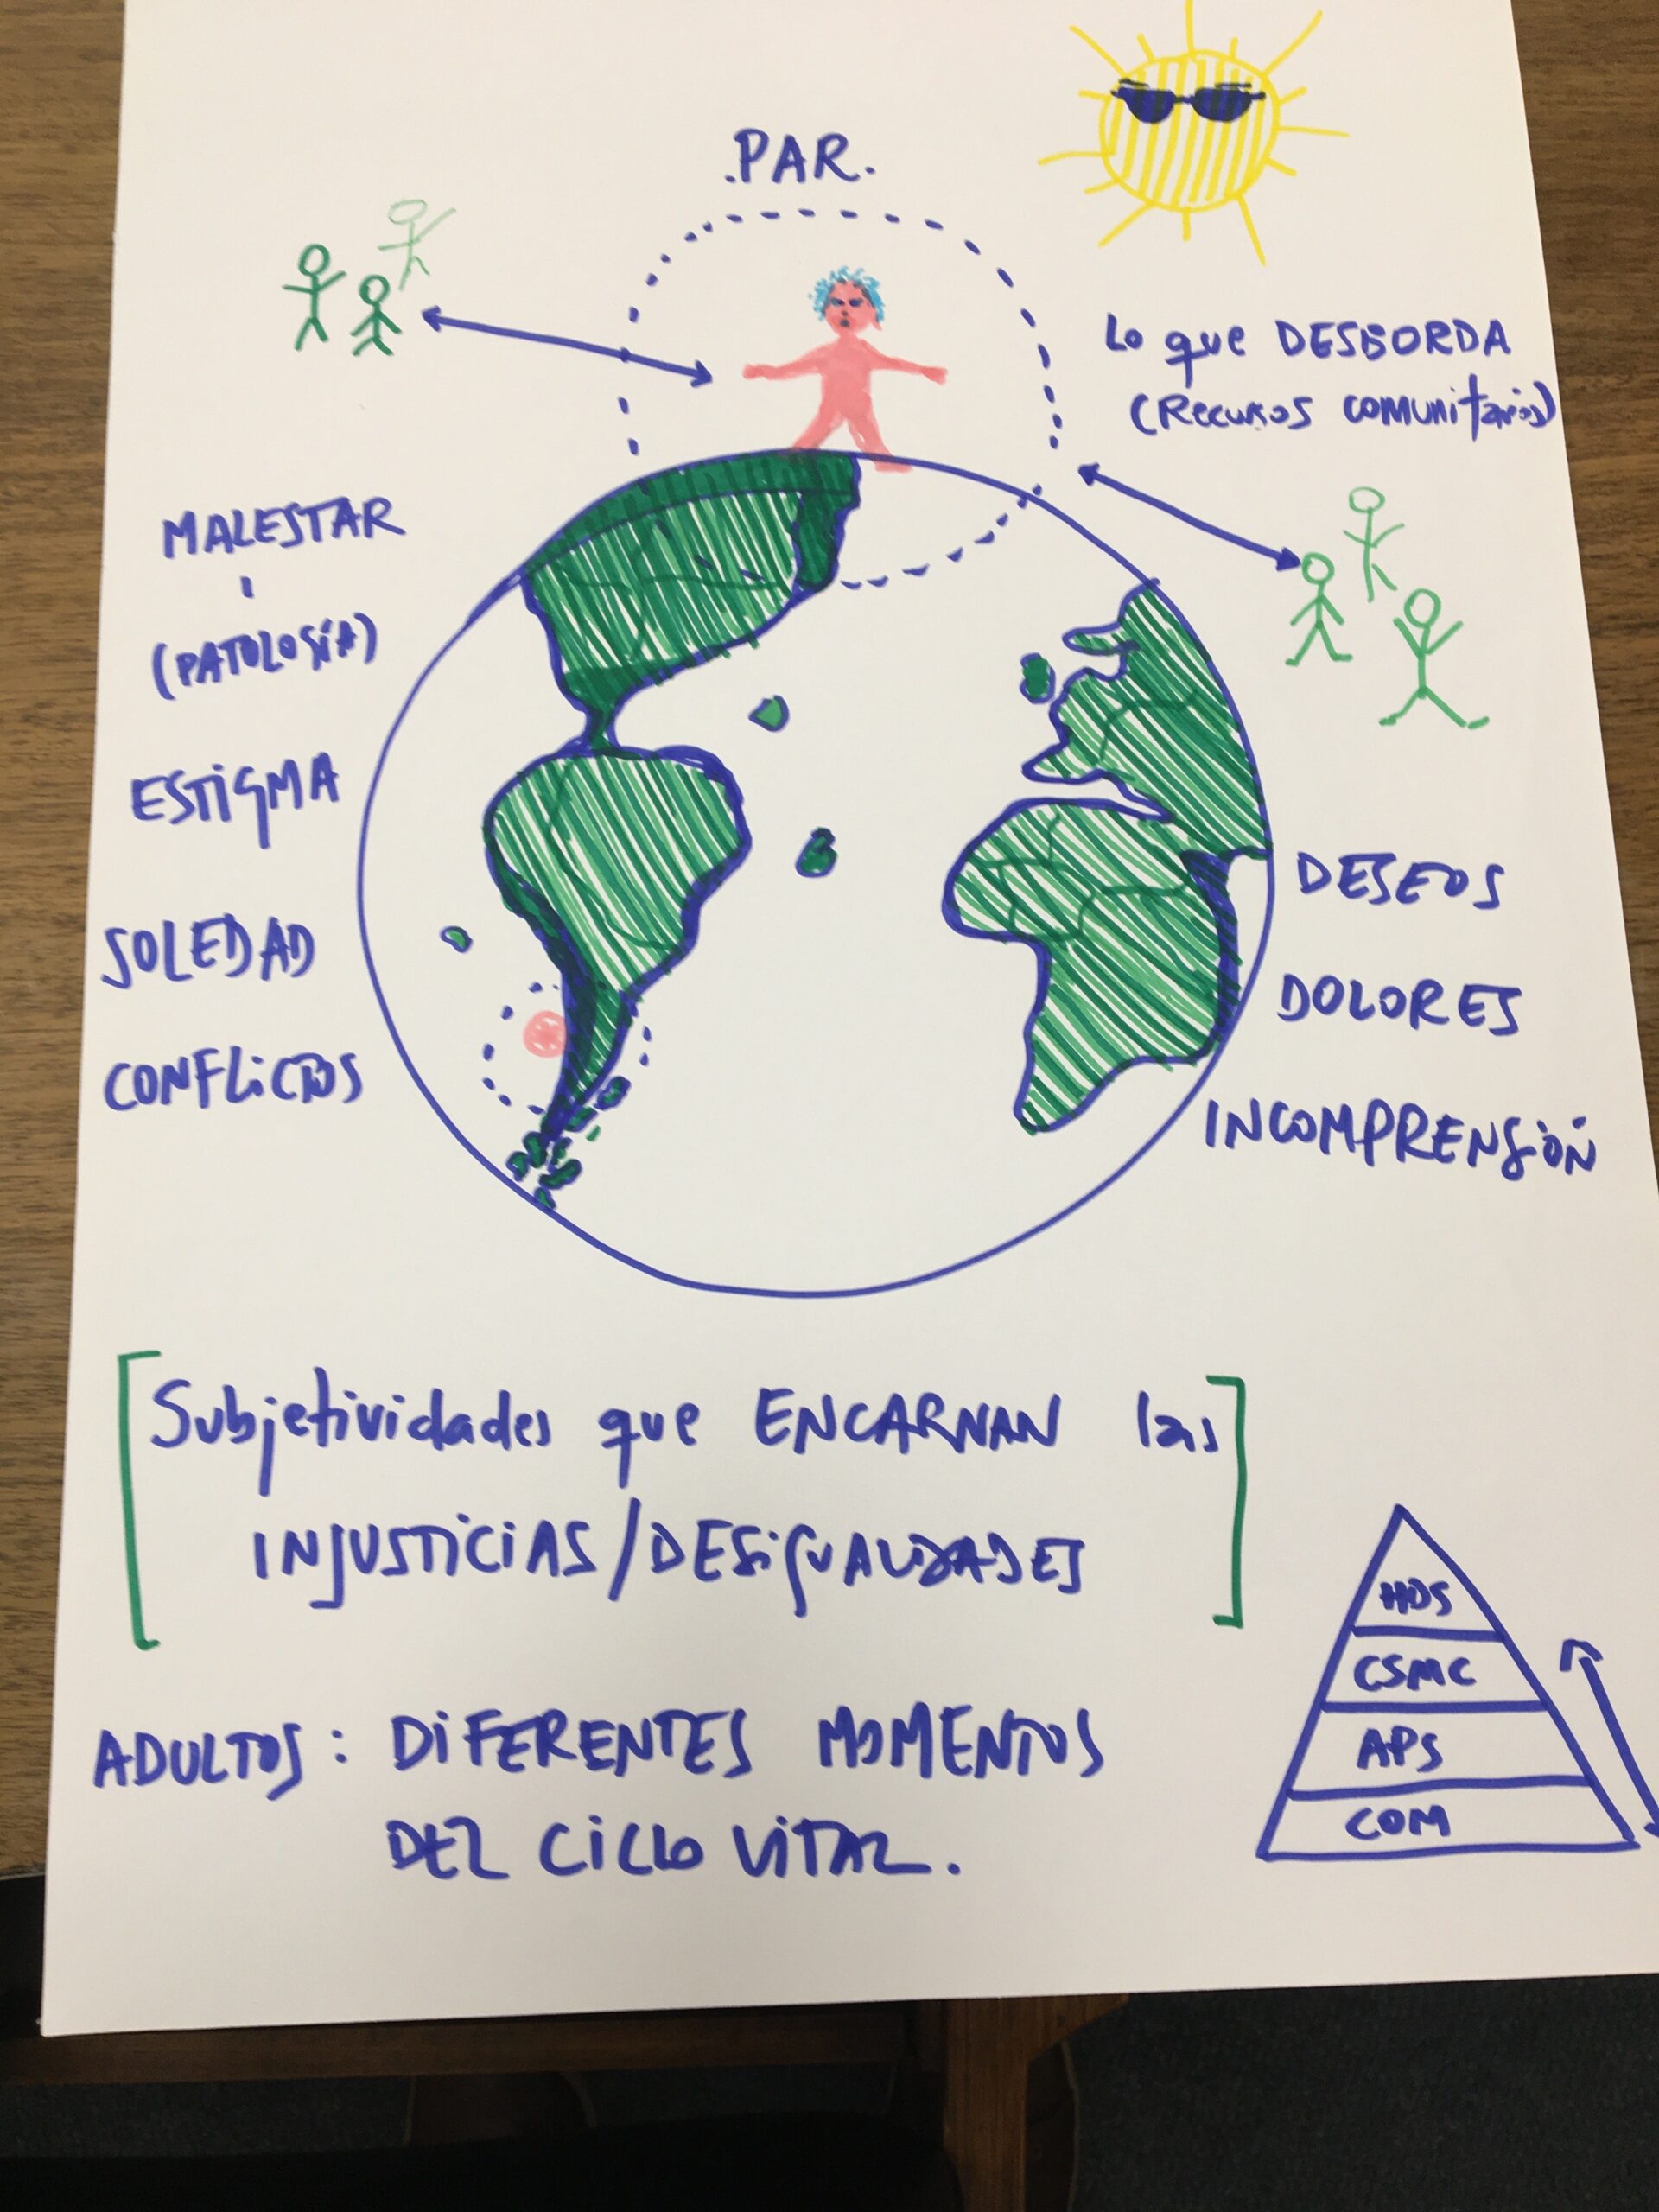 .PAR.
Lo que DESBORDA
(Recursos comunitarios)
MALESTAR
(PATOLOGíA)
ESTiGMA
SOLEDAD
CONFLiCTOS
DESEOS
DOLORES
INCOMPRENSiÓN
[Subjetividades que ENCARNAN las
INJUSTiCiAS/DESiGUALDADES]
ADULTOS: DiFERENTES MOMENTOS
DEL CiCLO ViTAL.
HDS
CSMC
APS
COM